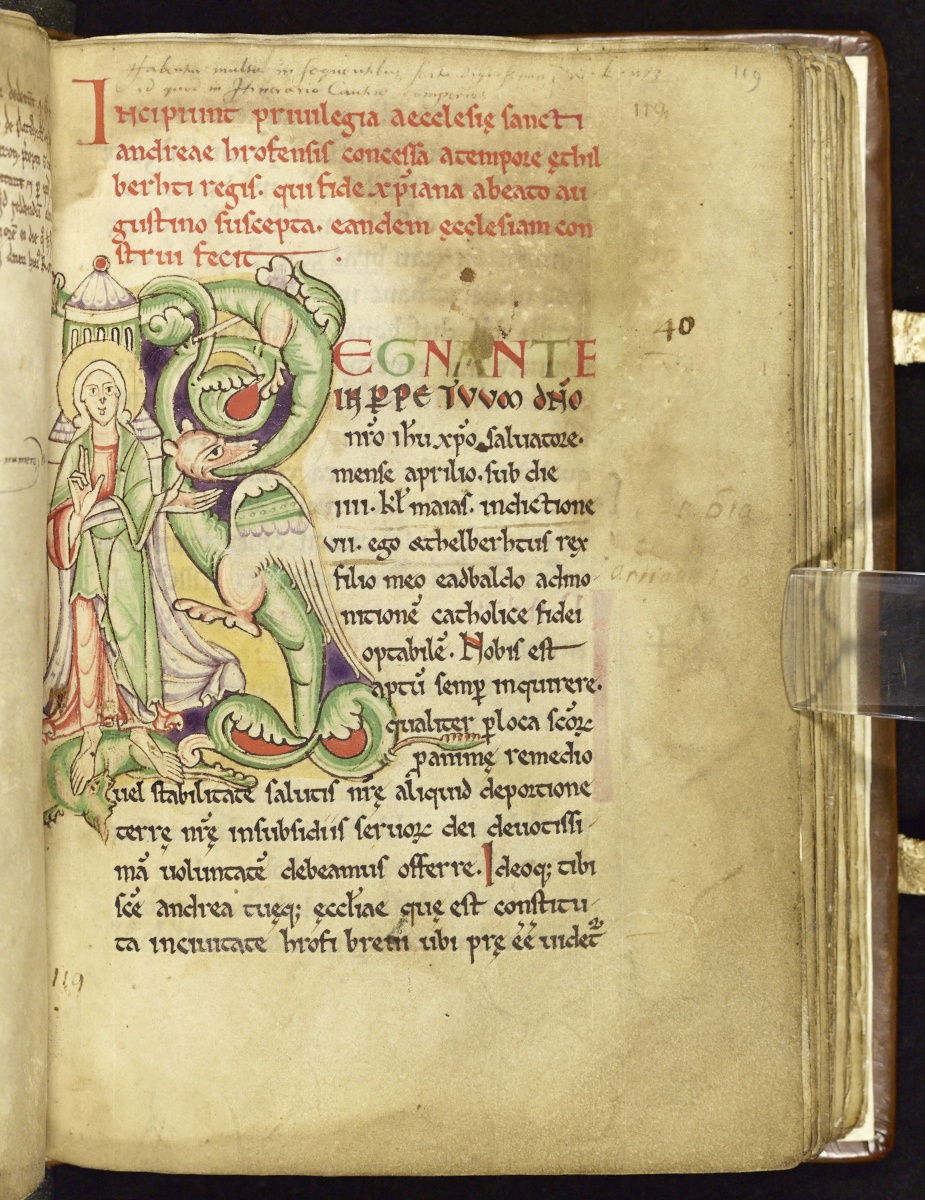 119
119
Incipiunt priuilegia aecclesię sancti
andreae hrofensis concessa atempore ęthil
berhti regis. qui fide xp̄iana abeato au
gustino suscepta. eandem ęcclesiam con
strui fecit.
40
REGNANTE
IN PPETVVM DN̄O
nr̄o ih̄u xp̄o saluatore.
mense aprilio. sub die
IIII. kl̄ maias. indictione
VII. ego æthelberhtus rex
filio meo eadbaldo admo
nitionē catholice fidei
optabilē. Nobis est
aptū semꝑ inquirere.
qualiter ꝑ loca scōꝝ
ꝑ animę remedio
uel stabilitate salutis nr̄ę aliquid deportione
terrę nr̄ę insubsidiis seruoꝝ dei deuotissi
mā uoluntatē debeamus offerre. Ideoq; tibi
scē andrea tuęq; ęccl̄iae quę est constitu
ta inciuitate hrofi breui ubi pręēē uidet᷑
119